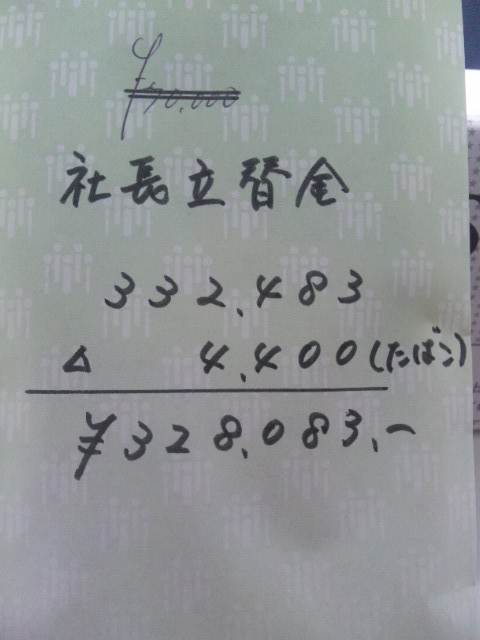 ¥70,000
社長立替金
332,483
△ 4,400(たばこ)
¥328,083,-